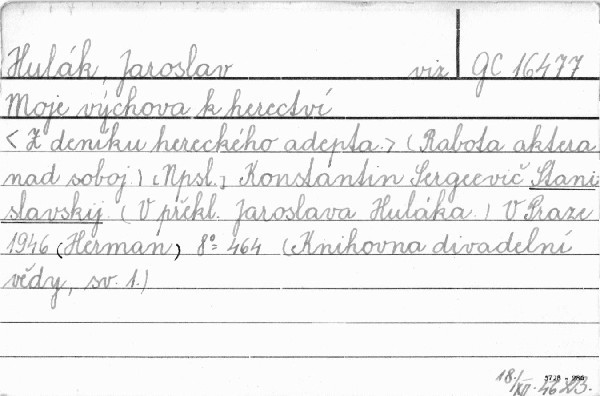 Hulák, Jaroslav viz GC 16477
Moje výchova k herectví
< Z deníku hereckého adepta. > (Rabota aktera
nad soboj.) [Npsl.] Konstantin Sergeevič Stani
slavskij. (V překl. Jaroslava Huláka.) V Praze
1946 (Herman) 8°= 464 (Knihovna divadelní
vědy, sv. 1.)
18./XII. 46